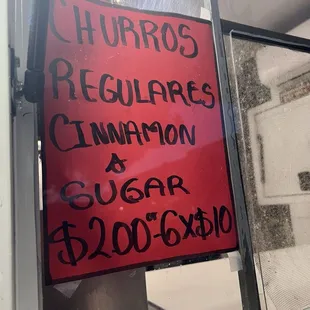 CHURROS
REGULARES
CINNAMON
&
SUGAR
$2.00 - 6x$10